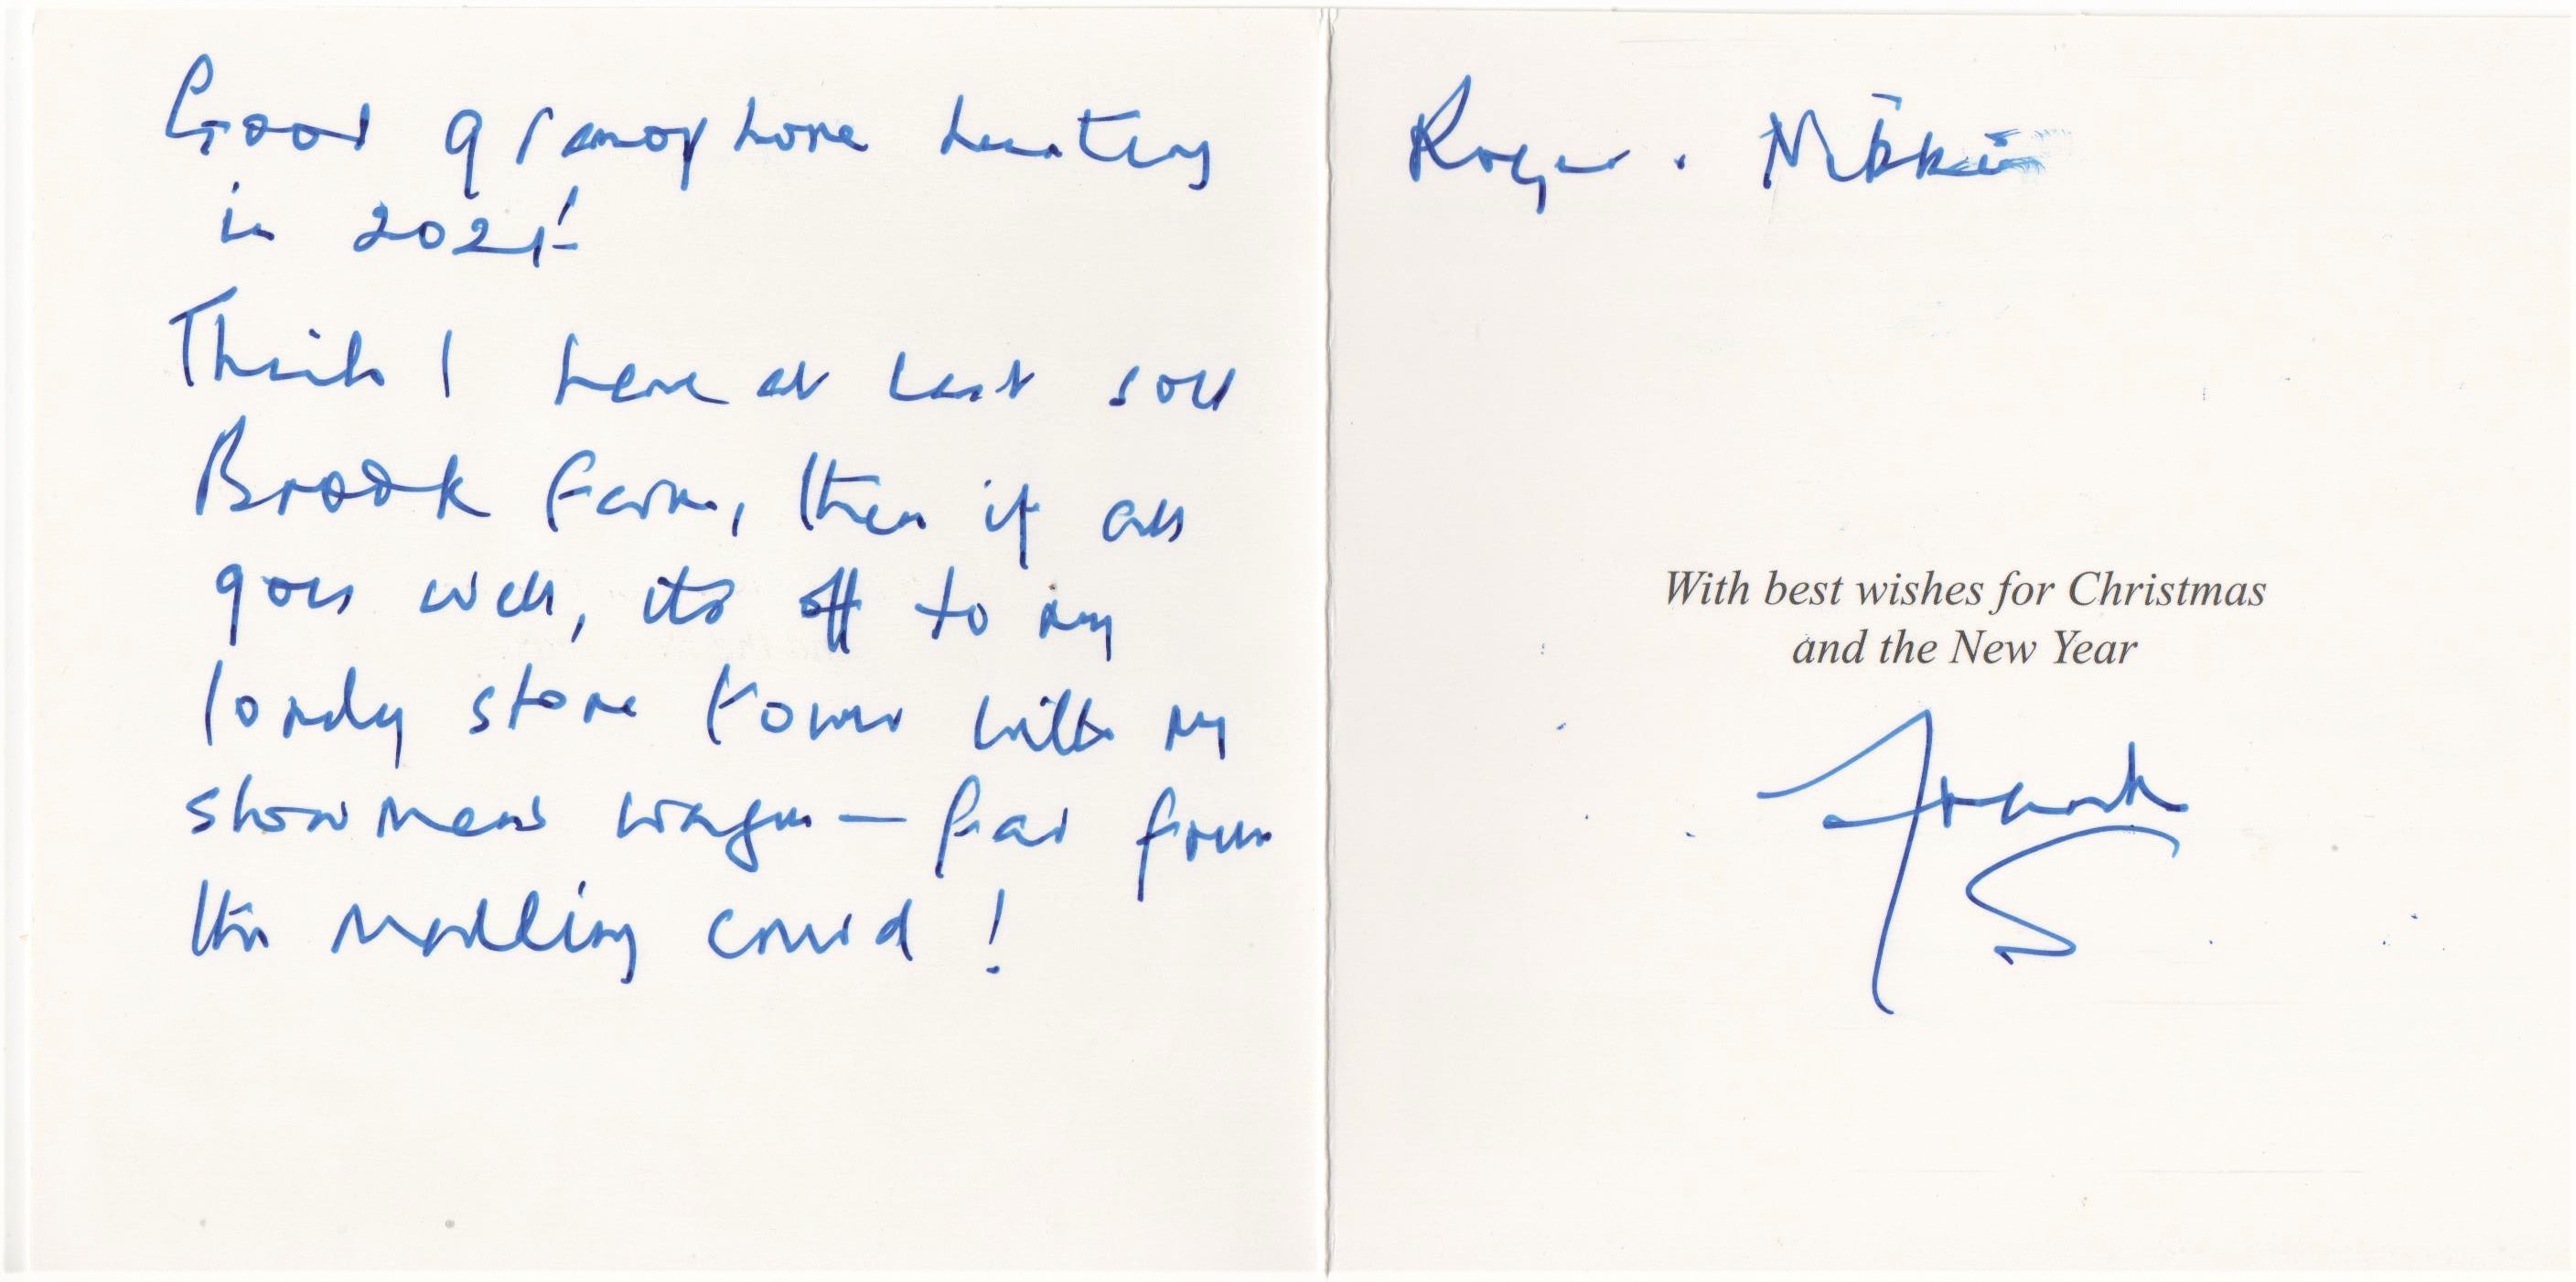 Good gramophone hunting
in 2021!
Think I have at last sold
Brook Farm, then if all
goes well, its off to my
lonely stone tower with my
showmens wagon – far from
the madding crowd!
Roger.
With best wishes for Christmas
and the New Year
Frank
S